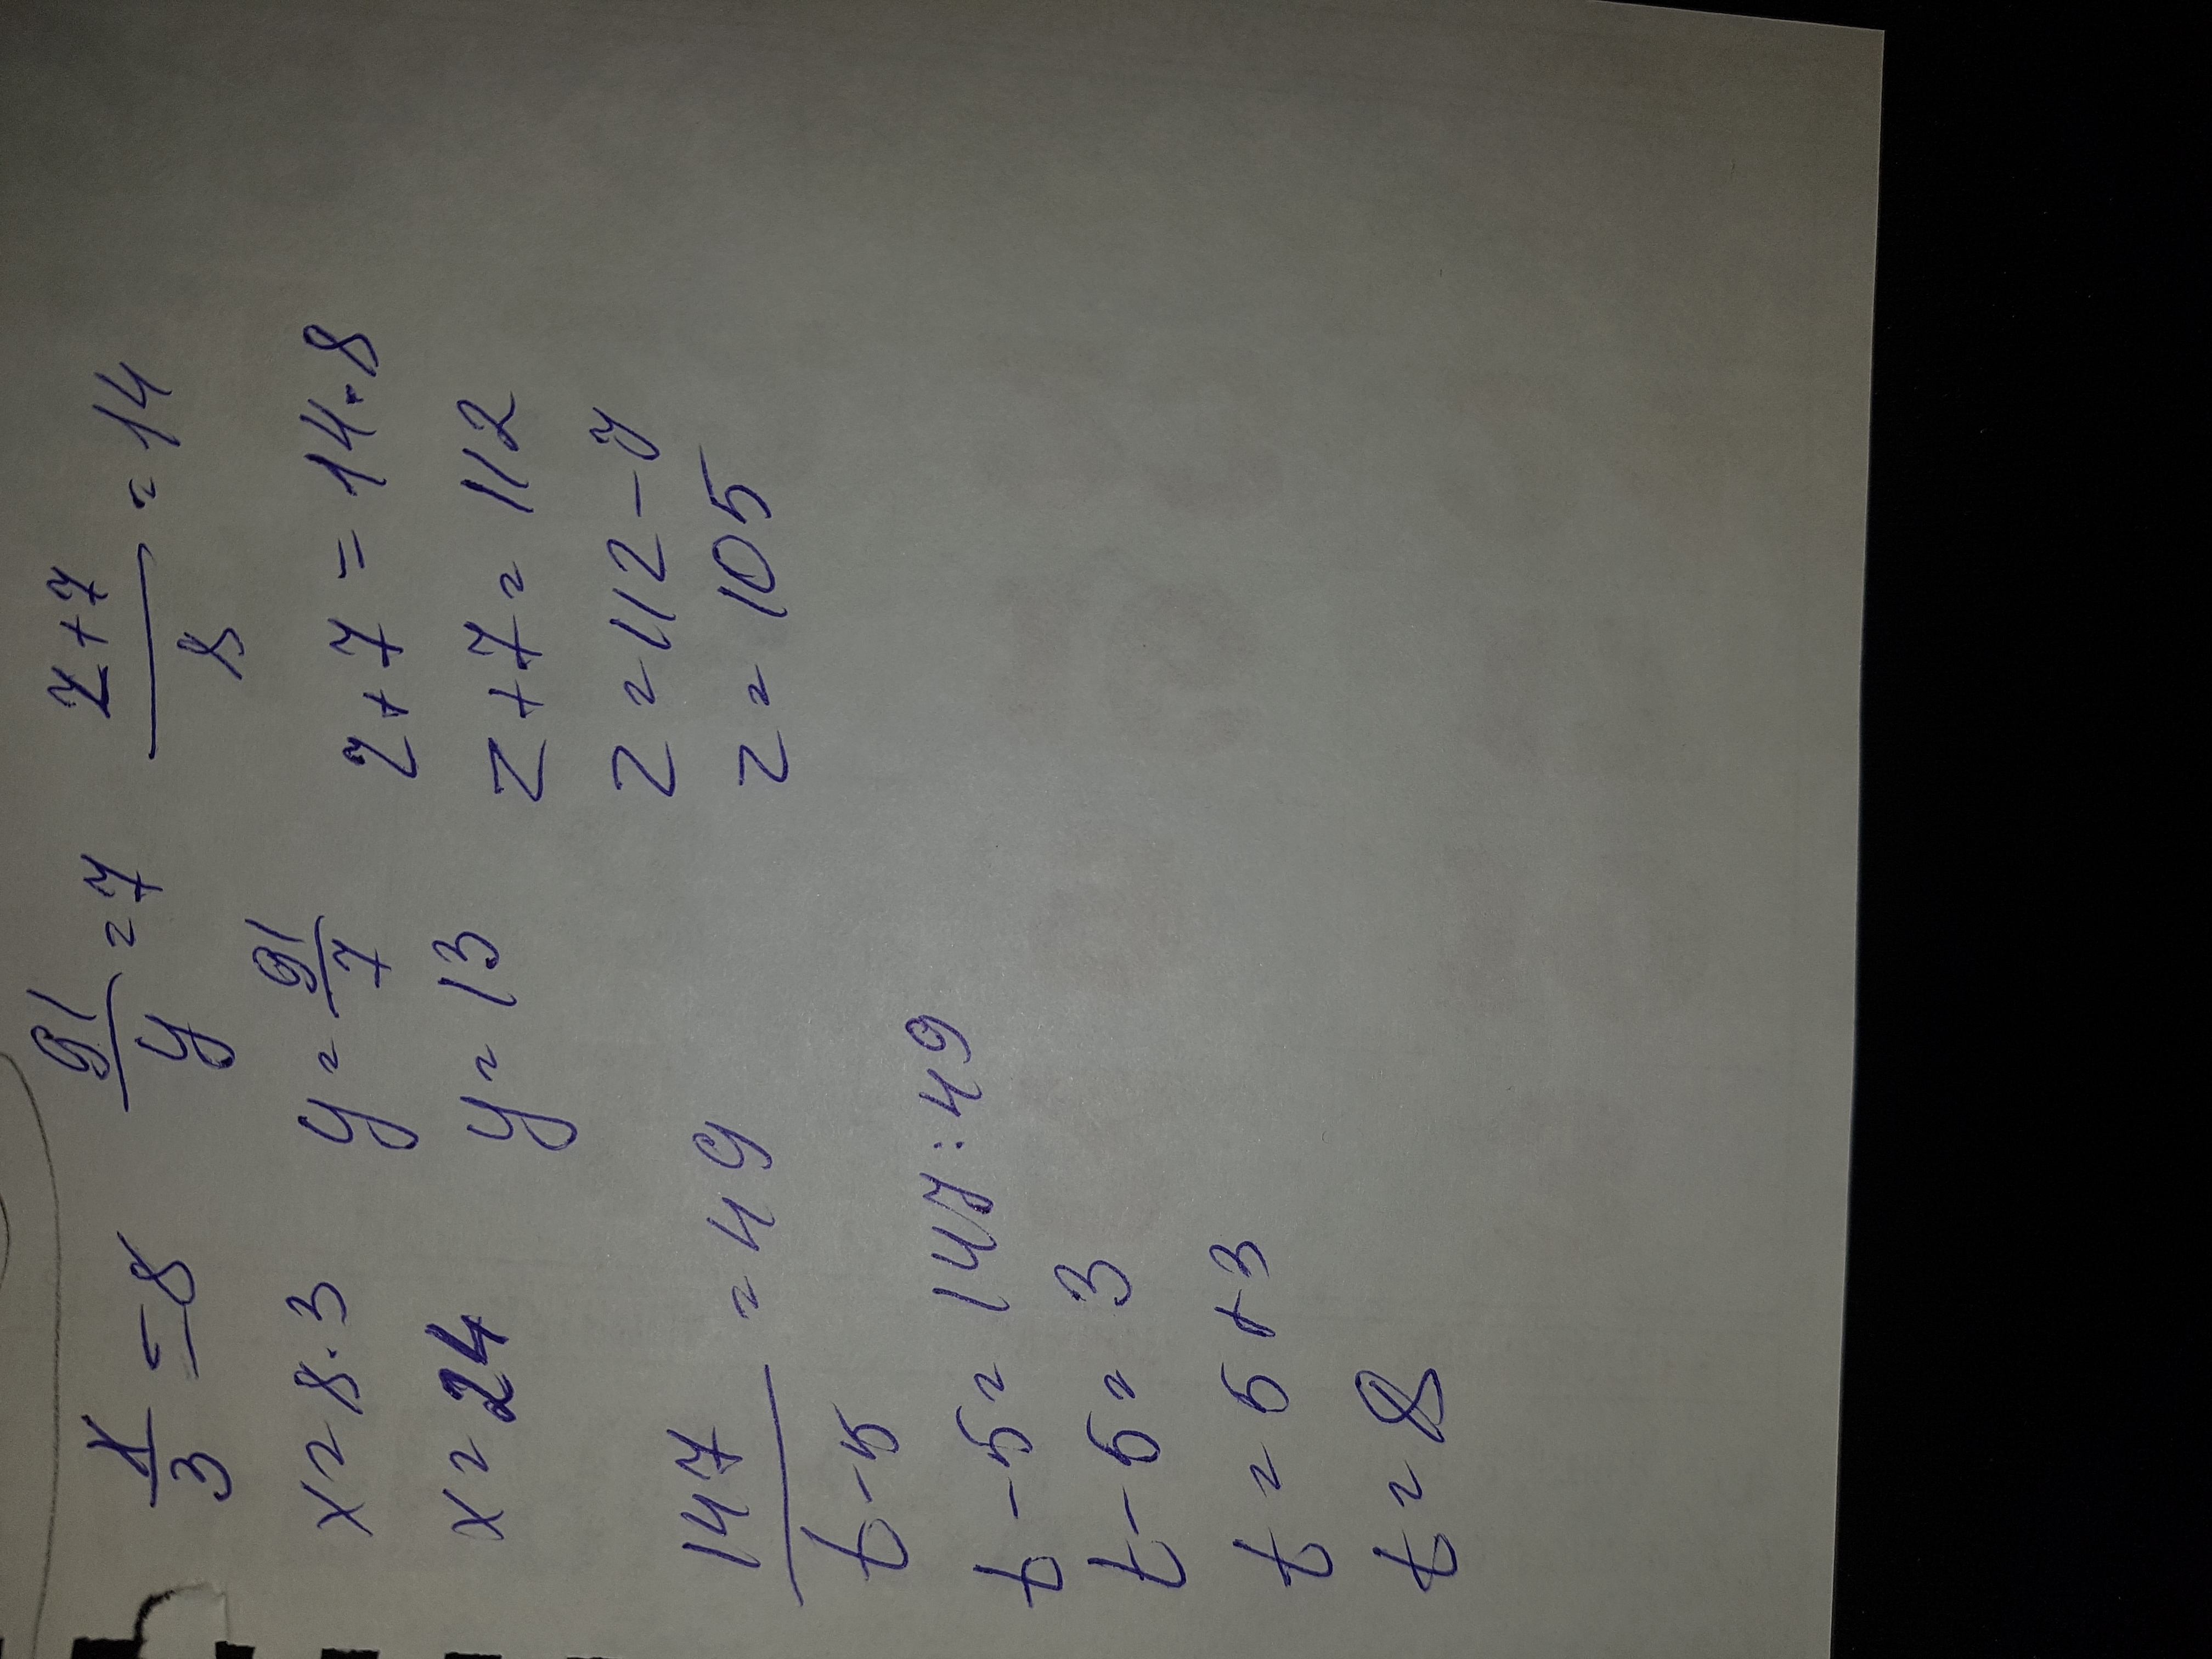 x/3 = 8
x = 8 · 3
x = 24
91/y = 7
y = 91/7
y = 13
z+7/8 = 14
z+7 = 14·8
z+7 = 112
z = 112 - 7
z = 105
147/t-5 = 49
t-5 = 147:49
t-5 = 3
t = 5+3
t = 8